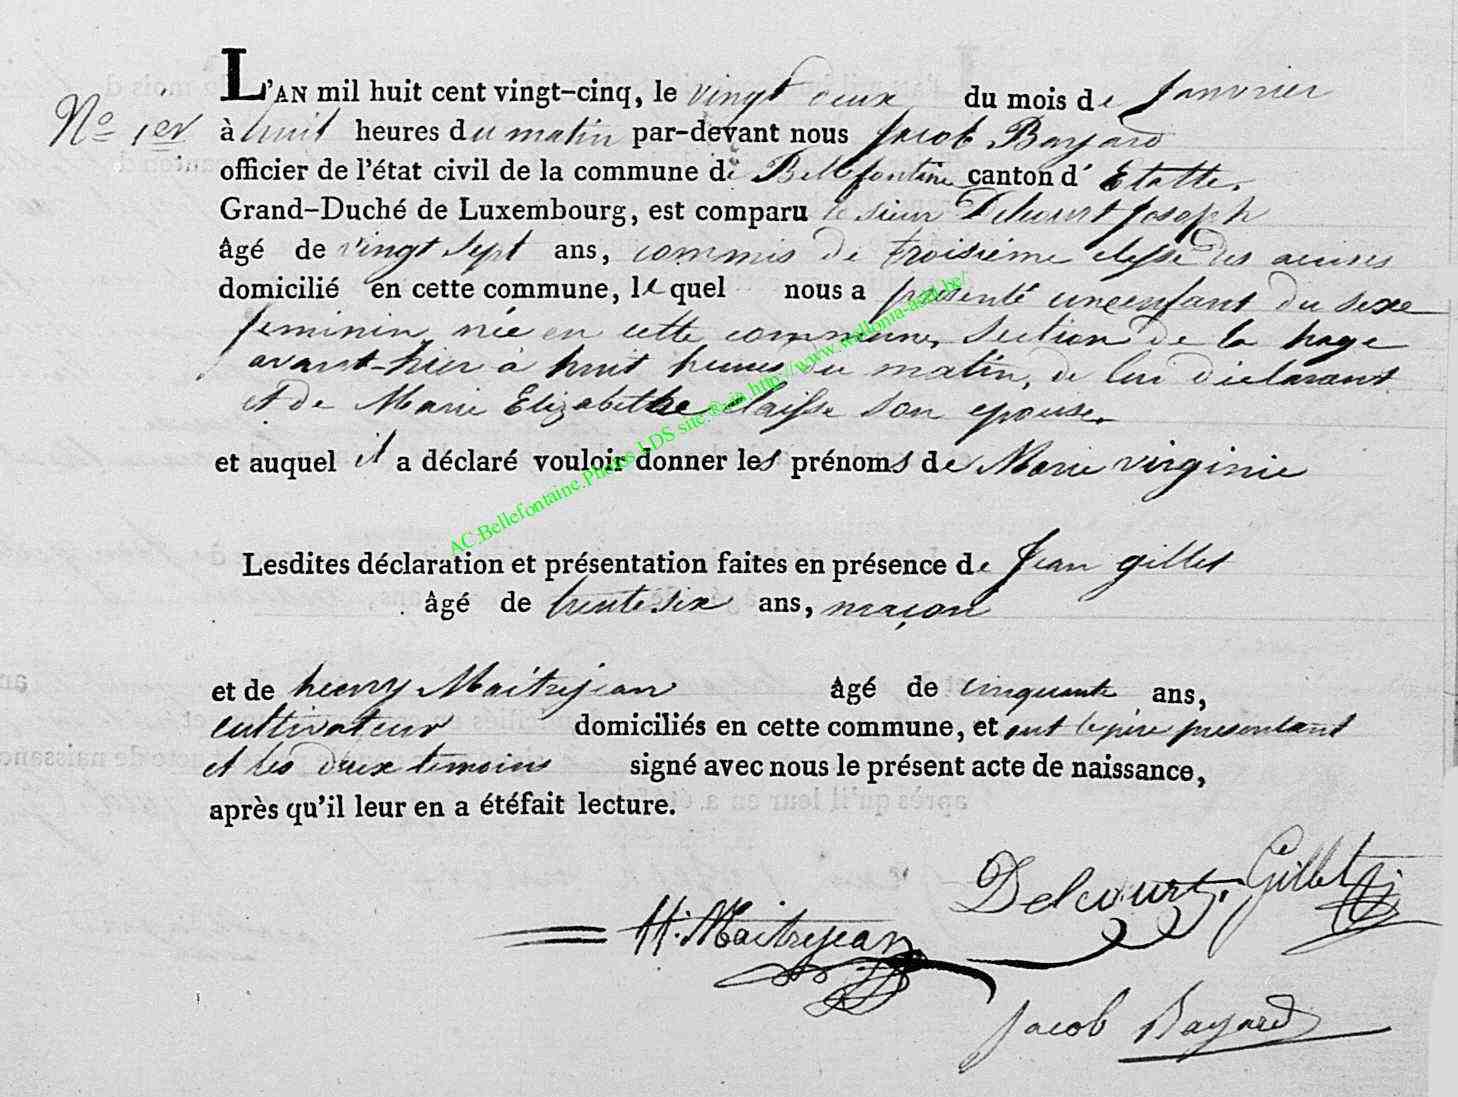 L'AN mil huit cent vingt-cinq, le vingt deux du mois de Janvier
No 1er
à huit heures du matin par-devant nous Jacob Bayard
officier de l'état civil de la commune de Bellefontaine canton d' Etalle,
Grand-Duché de Luxembourg, est comparu le sieur Delcourt Joseph
âgé de vingt sept ans, commis de troisième classe des accises
domicilié en cette commune, le quel nous a présenté un enfant du sexe
feminin née en cette commune, section de la hage
avant-hier à huit heures du matin, de lui déclarant
et de Marie Elizabethe claisse son epouse,
et auquel il a déclaré vouloir donner les prénoms de Marie virginie
AC.Bellefontaine.Photos LDS site http://www.wallonia-asbl.be/
Lesdites déclaration et présentation faites en présence de Jean gillet
âgé de trente six ans, maçon
et de henry Maitrejean âgé de cinquante ans,
cultivateur domiciliés en cette commune, et ont le père presentant
et les deux temoins signé avec nous le présent acte de naissance,
après qu'il leur en a étéfait lecture.
Delcourt. Gillet
H. Maitrejean
Jacob Bayard